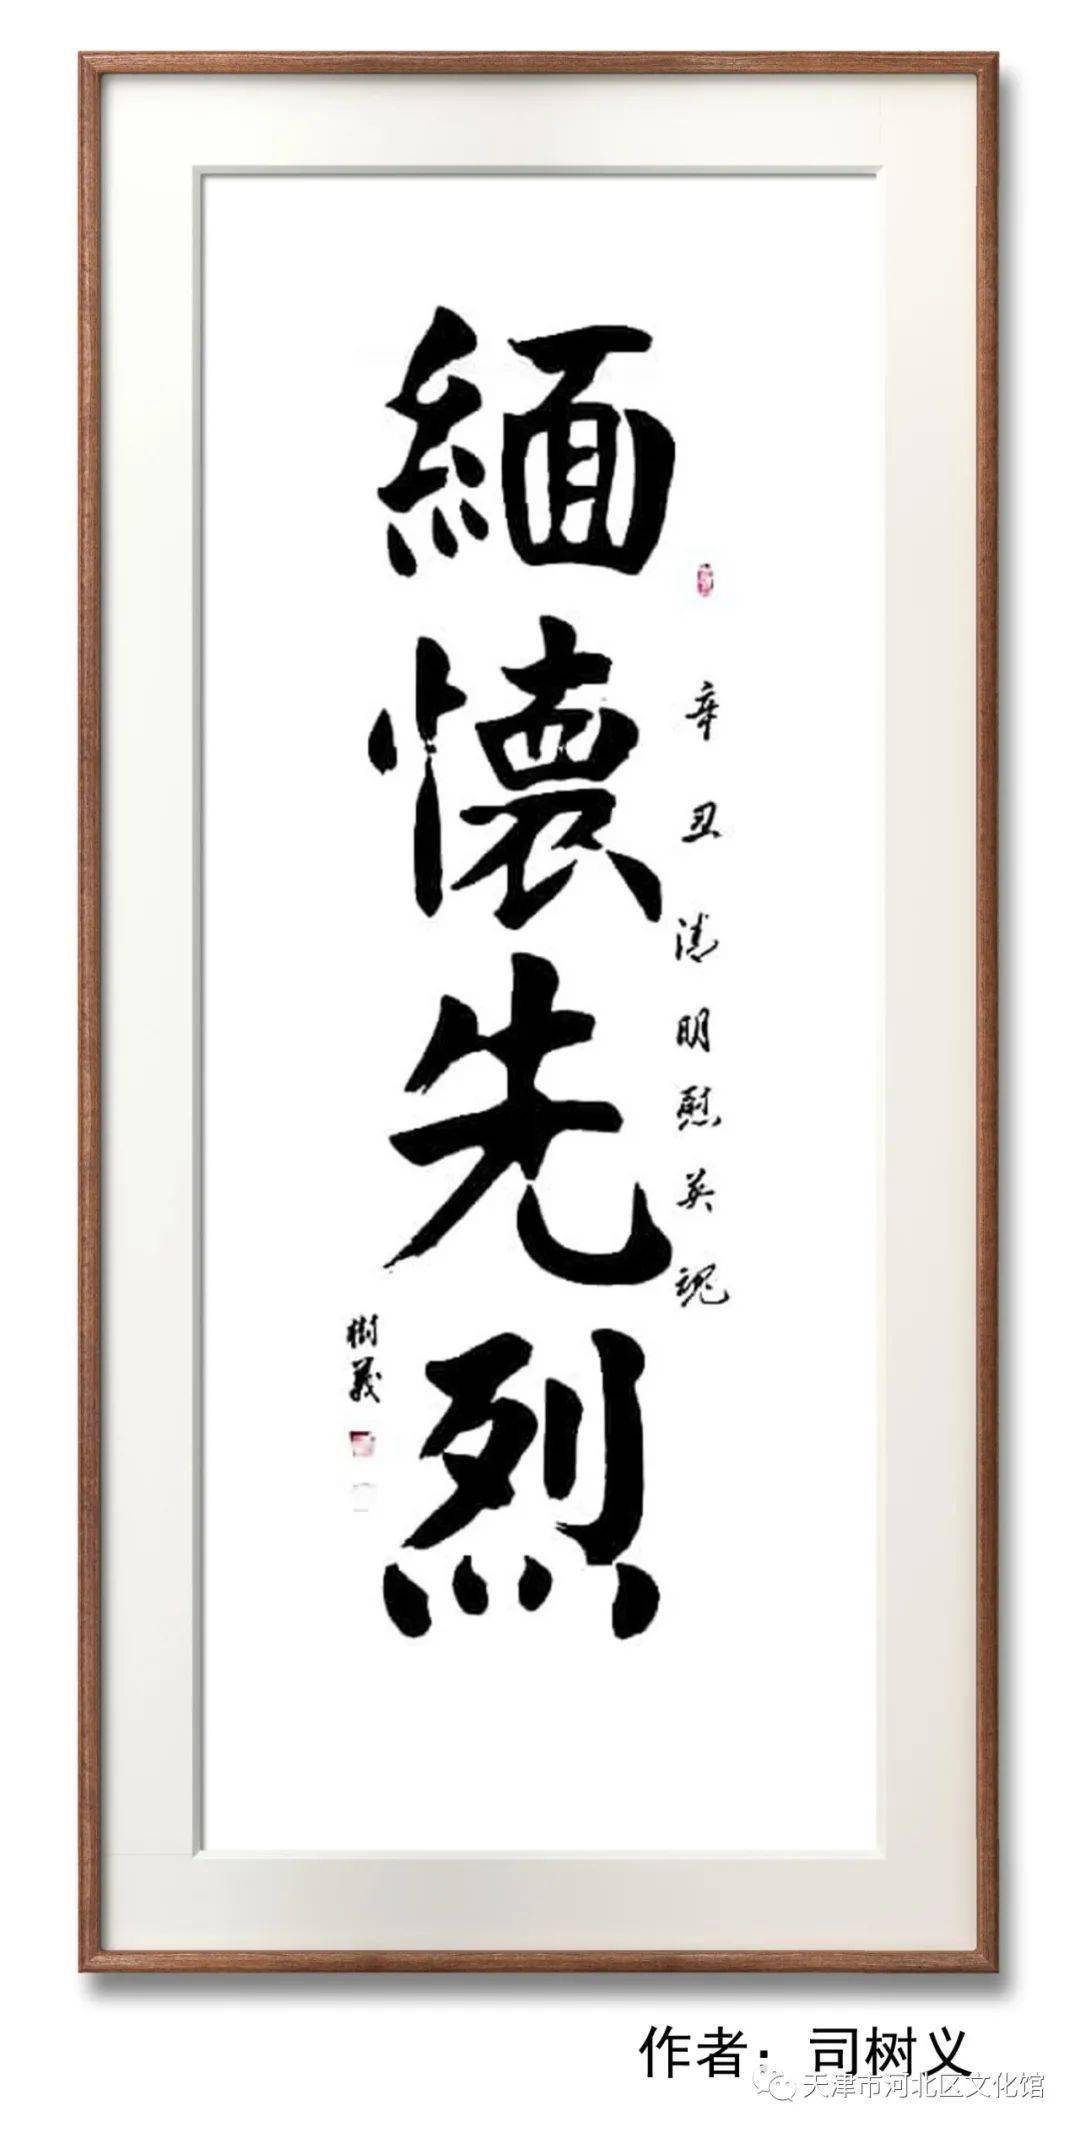 辛丑清明慰英魂
緬懷先烈
樹義
作者：司树义
天津市河北区文化馆